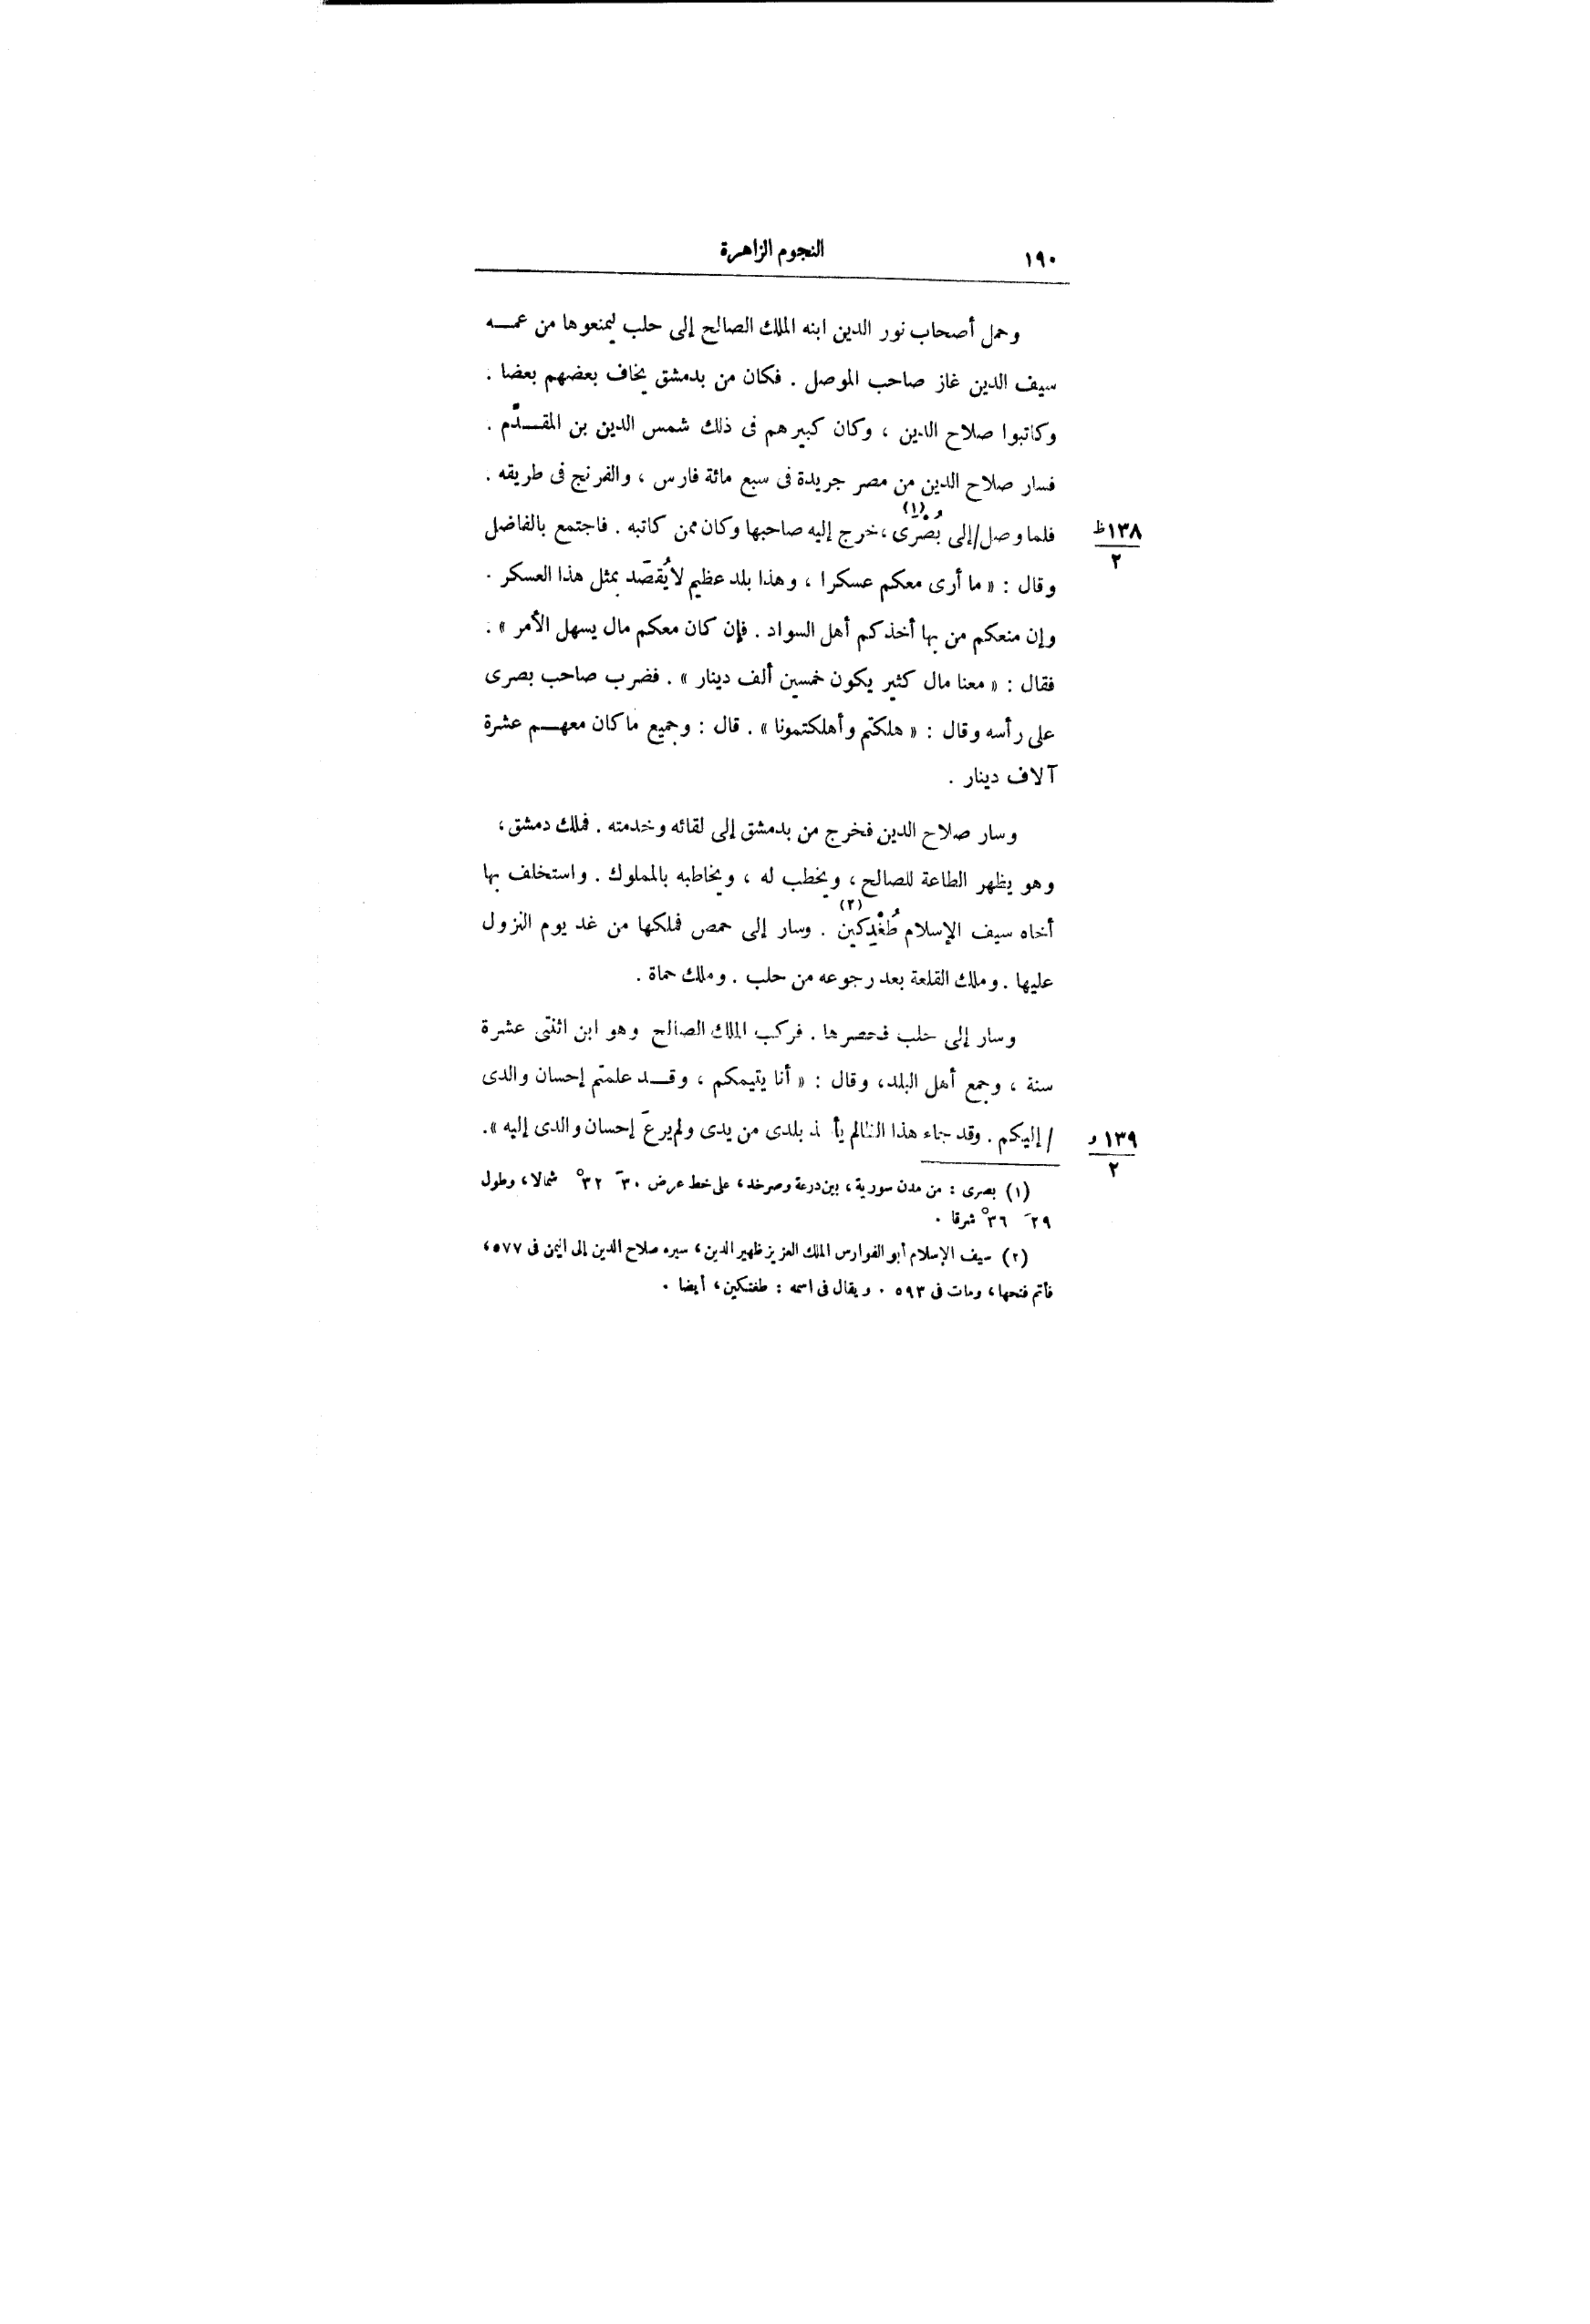 ١٩٠
النجوم الزاهرة
وحمل أصحاب نور الدين ابنه الملك الصالح إلى حلب ليمنعوها من عمـــه
سيف الدين غاز صاحب الموصل . فكان من بدمشق يخاف بعضهم بعضا .
وكاتبوا صلاح الدين ، وكان كبيرهم فى ذلك شمس الدين بن المقـــدَّم .
فسار صلاح الدين من مصر جريدة فى سبع مائة فارس ، والفرنج فى طريقه .
فلما وصل/إلى بُصْرى(١)، خرج إليه صاحبها وكان ممن كاتبه . فاجتمع بالفاضل
١٣٨ظ
٢
وقال : « ما أرى معكم عسكرا ، وهذا بلد عظيم لا يُقصَد بمثل هذا العسكر .
وإن منعكم من بها أخذكم أهل السواد . فإن كان معكم مال يسهل الأمر » .
فقال : « معنا مال كثير يكون خمسين ألف دينار » . فضرب صاحب بصرى
على رأسه وقال : « هلكتم وأهلكتمونا » . قال : وجميع ما كان معهـــم عشرة
آلاف دينار .
وسار صلاح الدين فخرج من بدمشق إلى لقائه وخدمته . فملك دمشق،
وهو يظهر الطاعة للصالح ، ويخطب له ، ويخاطبه بالمملوك . واستخلف بها
أخاه سيف الإسلام طُغْدِكين(٢) . وسار إلى حمص فملكها من غد يوم النزول
عليها . وملك القلعة بعد رجوعه من حلب . وملك حماة .
وسار إلى حلب فحصرها . فركب الملك الصالح وهو ابن اثنتى عشرة
سنة ، وجمع أهل البلد ، وقال : « أنا يتيمكم ، وقـــد علمتم إحسان والدى
/ إليكم . وقد جاء هذا الظالم يأخذ بلدى من يدى ولم يرعَ إحسان والدى إليه ».
١٣٩و
٢
(١) بصرى : من مدن سورية ، بين درعة وصرخد ، على خط عرض ٣٠َ ٣٢° شمالا ، وطول
٢٩َ ٣٦° شرقا .
(٢) سيف الإسلام أبو الفوارس الملك العزيز ظهير الدين ، سيره صلاح الدين إلى اليمن فى ٥٧٧ ،
فأتم فتحها ، ومات فى ٥٩٣ . ويقال فى اسمه : طغتكين ، أيضا .